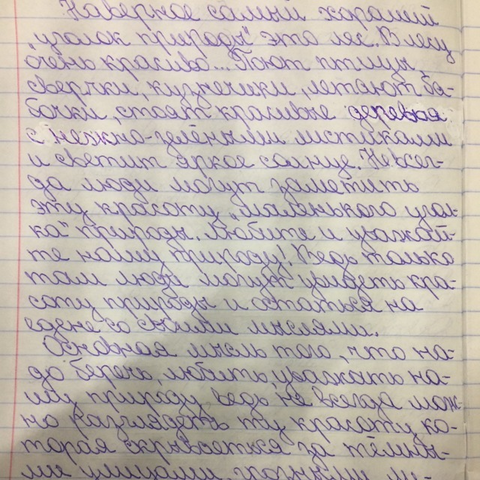 Наверное самый хороший
"уголок природы" это лес. В лесу
очень красиво... Поют птицы,
сверчки, кузнечики, летают ба-
бочки, стоят красивые деревья
с нежно-зелёными листиками
и светит яркое солнце. Не всег-
да люди могут заметить
эту красоту "маленького угол-
ка" природы. Любите и уважай-
те нашу природу! Ведь только
там люди могут увидеть кра-
соту природы и остаться на
едене со своими мыслями.
Основная мысль того, что на-
до беречь, любить, уважать на-
шу природу, ведь не всегда мож-
но разглядеть ту красоту, ко-
торая скрывается за тёмны-
ми улицами,